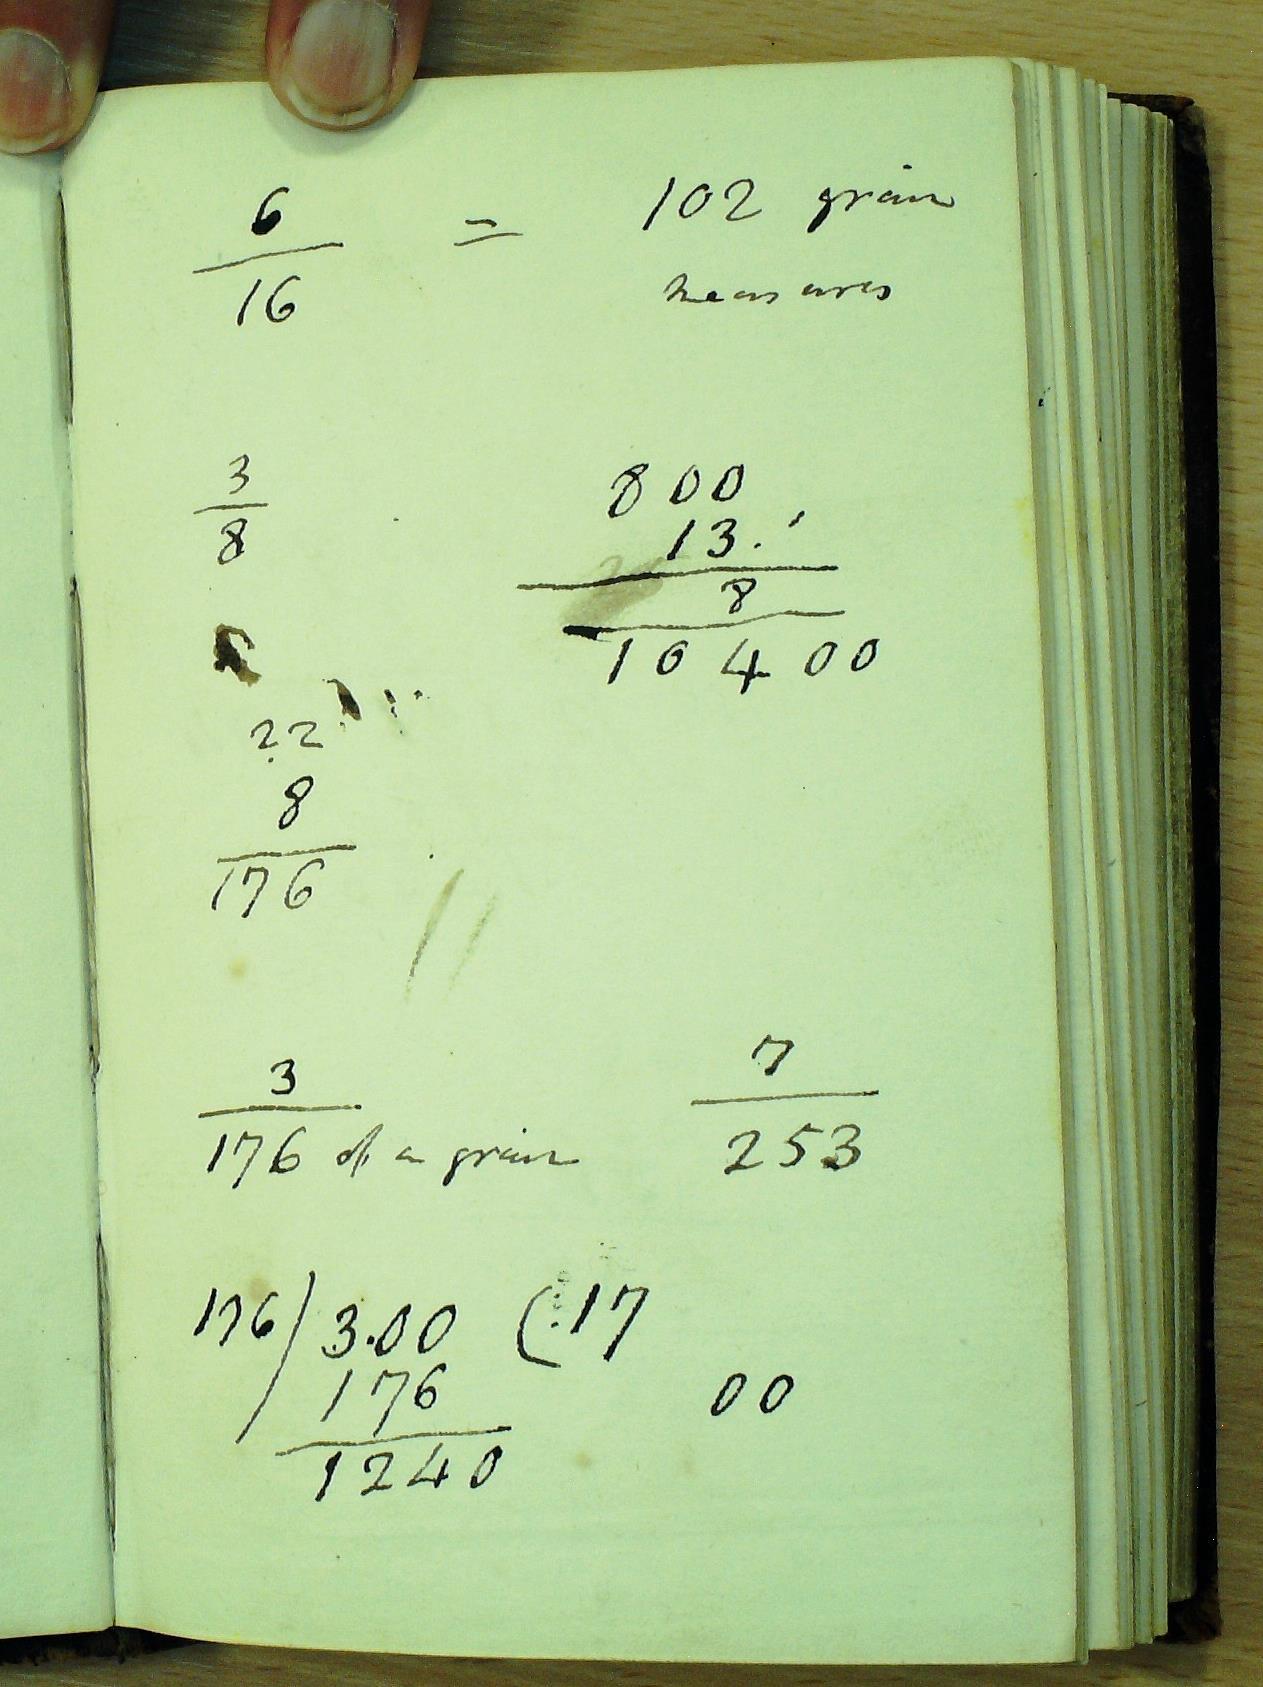 6/16 = 102 grain
3/8
800
13
8
10400
22
8
176
3/176 of a grain
7/253
176)3.00(.17
176
1240
00